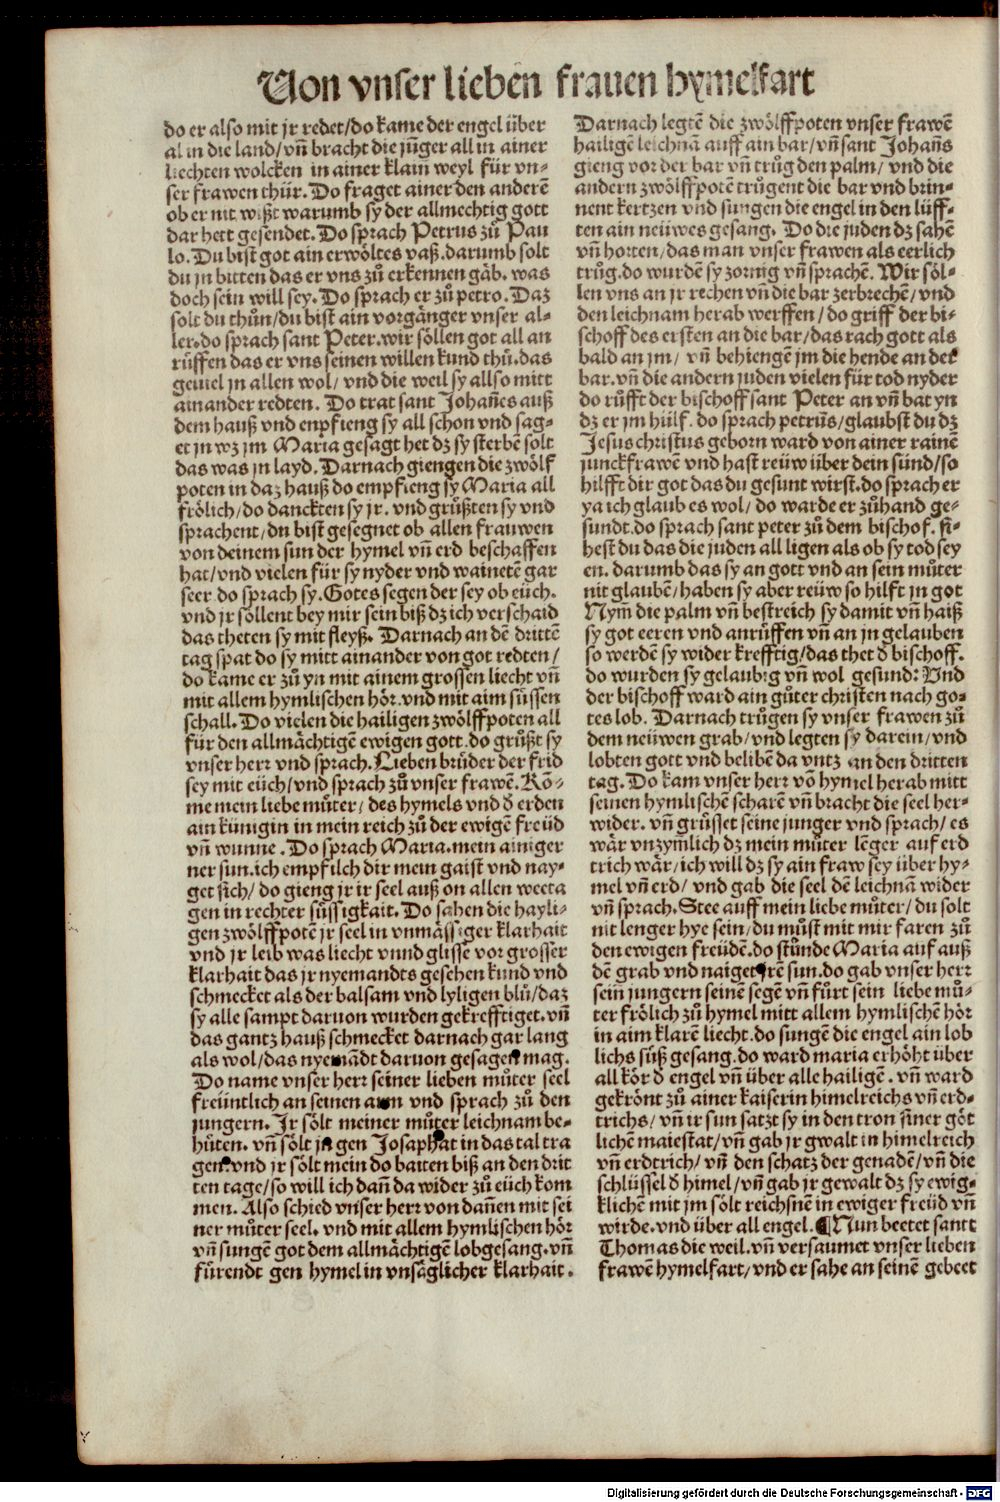 Von vnser lieben frauen hymelfart
do er also mit jr redet/do kame der engel über
al in die land/vñ bracht die jnger all in ainer
liechten wolcken in ainer klain weyl für vn-
ser frawen thür. Do fraget ainer den anderē
ob er nit wißt warumb sy der allmechtig gott
dar hett gesendet. Do sprach Petrus zů Pau
lo. Du bist got ain erwöltes vaß. darumb solt
du jn bitten das er vns zů erkennen gäb. was
doch sein will sey. Do sprach er zů petro. Daz
solt du thůn/du bist ain vorgänger vnser al-
ler. do sprach sant Peter. wir söllen got all an
rüffen das er vns seinen willen kund thů. das
geuiel jn allen wol/ vnd die weil sy allso mitt
ainander redten. Do trat sant Johañes auß
dem hauß vnd enpfieng sy all schon vnd sag-
et jn wz jm Maria gesagt het dz sy sterbē solt
das was jn layd. Darnach giengen die zwölf
poten in daz hauß do empfieng sy Maria all
frölich/do danckten sy jr. vnd grüßten sy vnd
sprachent/du bist gesegnet ob allen frauwen
von deinem sun der hymel vñ erd beschaffen
hat/vnd vielen für sy nyder vnd wainetē gar
seer do sprach sy. Gotes segen der sey ob eüch.
vnd jr söllent bey mir sein biß dz ich verschaid
das theten sy mit fleyß. Darnach an dē drittē
tag spat do sy mitt ainander von got redten/
do kame er zů yn mit ainem grossen liecht vñ
mit allem hymlischen hör. vnd mit aim süssen
schall. Do vielen die hailigen zwölffpoten all
für den allmächtigē ewigen gott. do grüßt sy
vnser herr vnd sprach. Lieben brüder der frid
sey mit eüch/vnd sprach zů vnser frawē. Kō-
me mein liebe můter/ des hymels vnd d̄ erden
ain künigin in mein reich zů der ewigē freüd
vñ wunne. Do sprach Maria. mein ainiger
ner sun. ich empfilch dir mein gaist vnd nay-
get sich/ do gieng jr ir seel auß on allen weeta
gen in rechter süssigkait. Do sahen die hayli-
gen zwölffpotē jr seel in vnmässiger klarhait
vnd jr leib was liecht vnnd glisse vor grosser
klarhait das jr nyemandts gesehen kund vnd
schmecket als der balsam vnd lyligen blů/daz
sy alle sampt daruon wurden gekrefftiget. vñ
das gantz hauß schmecket darnach gar lang
als wol/das nyemādt daruon gesagen mag.
Do name vnser herr seiner lieben můter seel
freüntlich an seinen arm vnd sprach zů den
jungern. Jr sölt meiner můter leichnam be-
hüten. vñ sölt jn gen Josaphat in das tal tra
gen. vnd jr sölt mein do baiten biß an den drit
ten tage/so will ich dañ da wider zů eüch kom
men. Also schied vnser herr von dañen mit sei
ner můter seel. vnd mit allem hymlischen hör
vñ sungē got dem allmächtigē lobgesang. vñ
fürendt gen hymel in vnsäglicher klarhait.
Darnach legtē die zwölffpoten vnser frawē
hailigē leichnā auff ain bar/ vñ sant Johañs
gieng vor der bar vñ trůg den palm/ vnd die
andern zwölffpotē trůgent die bar vnd brin-
nent kertzen vnd sungen die engel in den lüff-
ten ain neüwes gesang. Do die juden dz sahē
vñ horten/das man vnser frawen als eerlich
trůg. do wurdē sy zornig vñ sprachē. Wir söl-
len vns an jr rechen vñ die bar zerbrechē/ vnd
den leichnam herab werffen/ do griff der bi-
schoff des ersten an die bar/das rach gott als
bald an jm/ vñ behiengē jm die hende an der
bar. vñ die andern juden vielen für tod nyder
do růfft der bischoff sant Peter an vñ bat yn
dz er im hülf. do sprach petrus/glaubst du dz
Jesus christus geborn ward von ainer rainē
junckfrawē vnd hast reüw über dein sünd/so
hilfft dir got das du gesunt wirst. do sprach er
ya ich glaub es wol/ do warde er zůhand ge-
sundt. do sprach sant peter zů dem bischof. si-
hest du das die juden all ligen als ob sy tod sey
en. darumb das sy an gott vnd an sein můter
nit glaubē/ haben sy aber reüw so hilft jn got
Nym̄ die palm vñ bestreich sy damit vñ haiß
sy got eeren vnd anrüffen vñ an jn gelauben
so werdē sy wider krefftig/das thet d̄ bischoff.
do wurden sy gelaubig vñ wol gesund: Vnd
der bischoff ward ain gůter christen nach go-
tes lob. Darnach trůgen sy vnser frawen zů
dem neüwen grab/vnd legten sy darein/vnd
lobten gott vnd belibē da vntz an den dritten
tag. Do kam vnser herr vō hymel herab mitt
seinen hymlischē scharē vñ bracht die seel her-
wider. vñ grüsset seine junger vnd sprach/ es
wär vnzym̄lich dz mein můter lēger auf erd
trich wär/ich will dz sy ain fraw sey über hy-
mel vñ erd/ vnd gab die seel dē leichnā wider
vñ sprach. Stee auff mein liebe můter/ du solt
nit lenger hye sein/du můst mit mir faren zů
den ewigen freüdē. do stůnde Maria auf auß
dē grab vnd naiget jrē sun. do gab vnser herr
sein jungern seinē segē vñ fürt sein liebe mů-
ter frölich zů hymel mitt allem hymlischē hör
in aim klarē liecht. do sungē die engel ain lob
lichs süß gesang. do ward maria erhöht über
all kör d̄ engel vñ über alle hailigē. vñ ward
gekrönt zů ainer kaiserin himelreichs vñ erd-
trichs/ vñ ir sun satzt sy in den tron siner göt
lichē maiestat/vñ gab jr gwalt in himelreich
vñ erdtrich/ vñ den schatz der genadē/vñ die
schlüssel d̄ himel/vñ gab jr gewalt dz sy ewig-
klichē mit jm sölt reichsnē in ewiger freüd vñ
wirde. vnd über all engel. ¶Nun beetet santt
Thomas die weil. vñ versaumet vnser lieben
frawē hymelfart/vnd er sahe an seinē gebeet
Digitalisierung gefördert durch die Deutsche Forschungsgemeinschaft - DFG